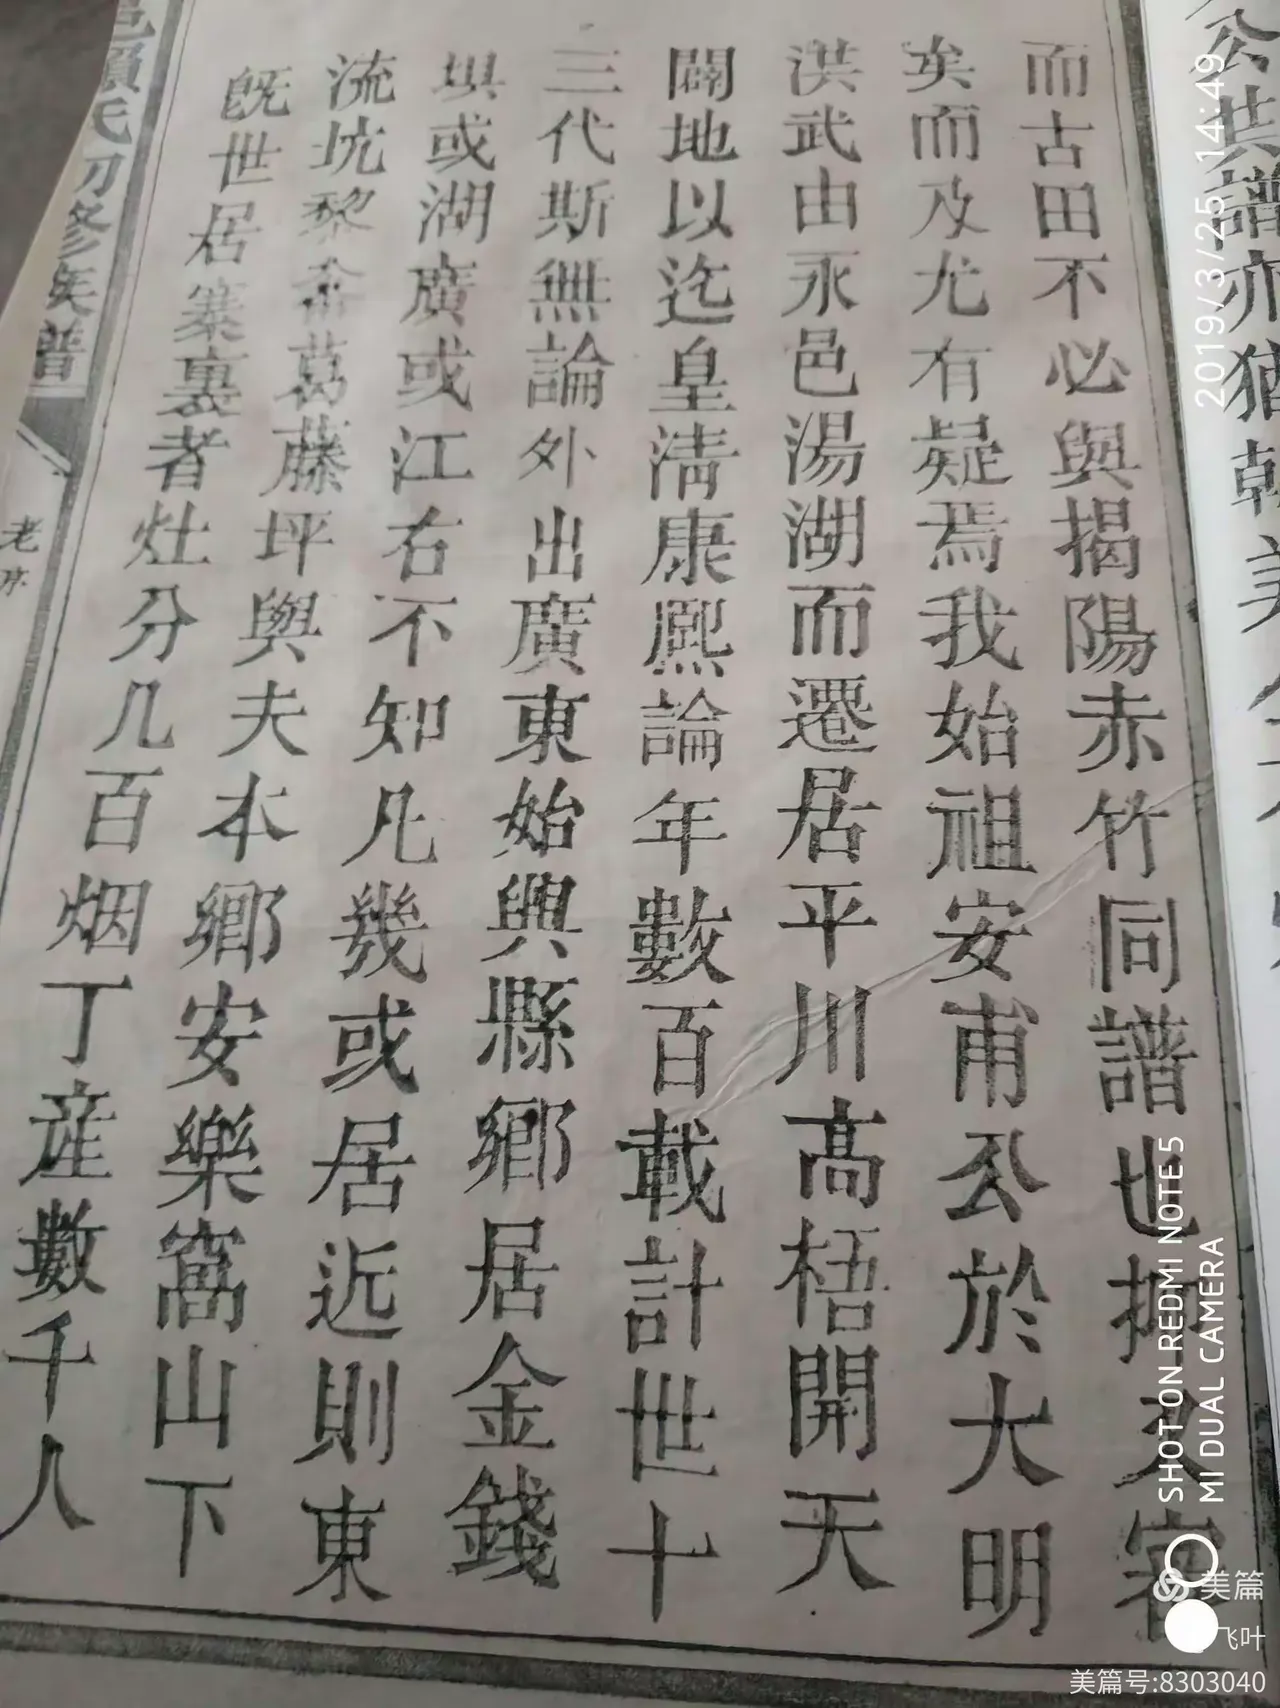 公共譜亦猶韓
而古田不必與揭陽赤竹同譜也
矣而及尤有疑焉我始祖安甫公於大明
洪武由永邑湯湖而遷居平川高梧開天
闢地以迄皇清康熙論年數百載計世十
三代斯無論外出廣東始興縣鄉居金錢
垻或湖廣或江右不知凡幾或居近則東
流坑黎畬葛藤坪與夫本鄉安樂窩山下
既世居寨裏者灶分几百烟丁産數千人
賴氏初修族譜
老序
2019/3/25 14:49
SHOT ON REDMI NOTE 5
MI DUAL CAMERA
美篇
飞叶
美篇号:8303040